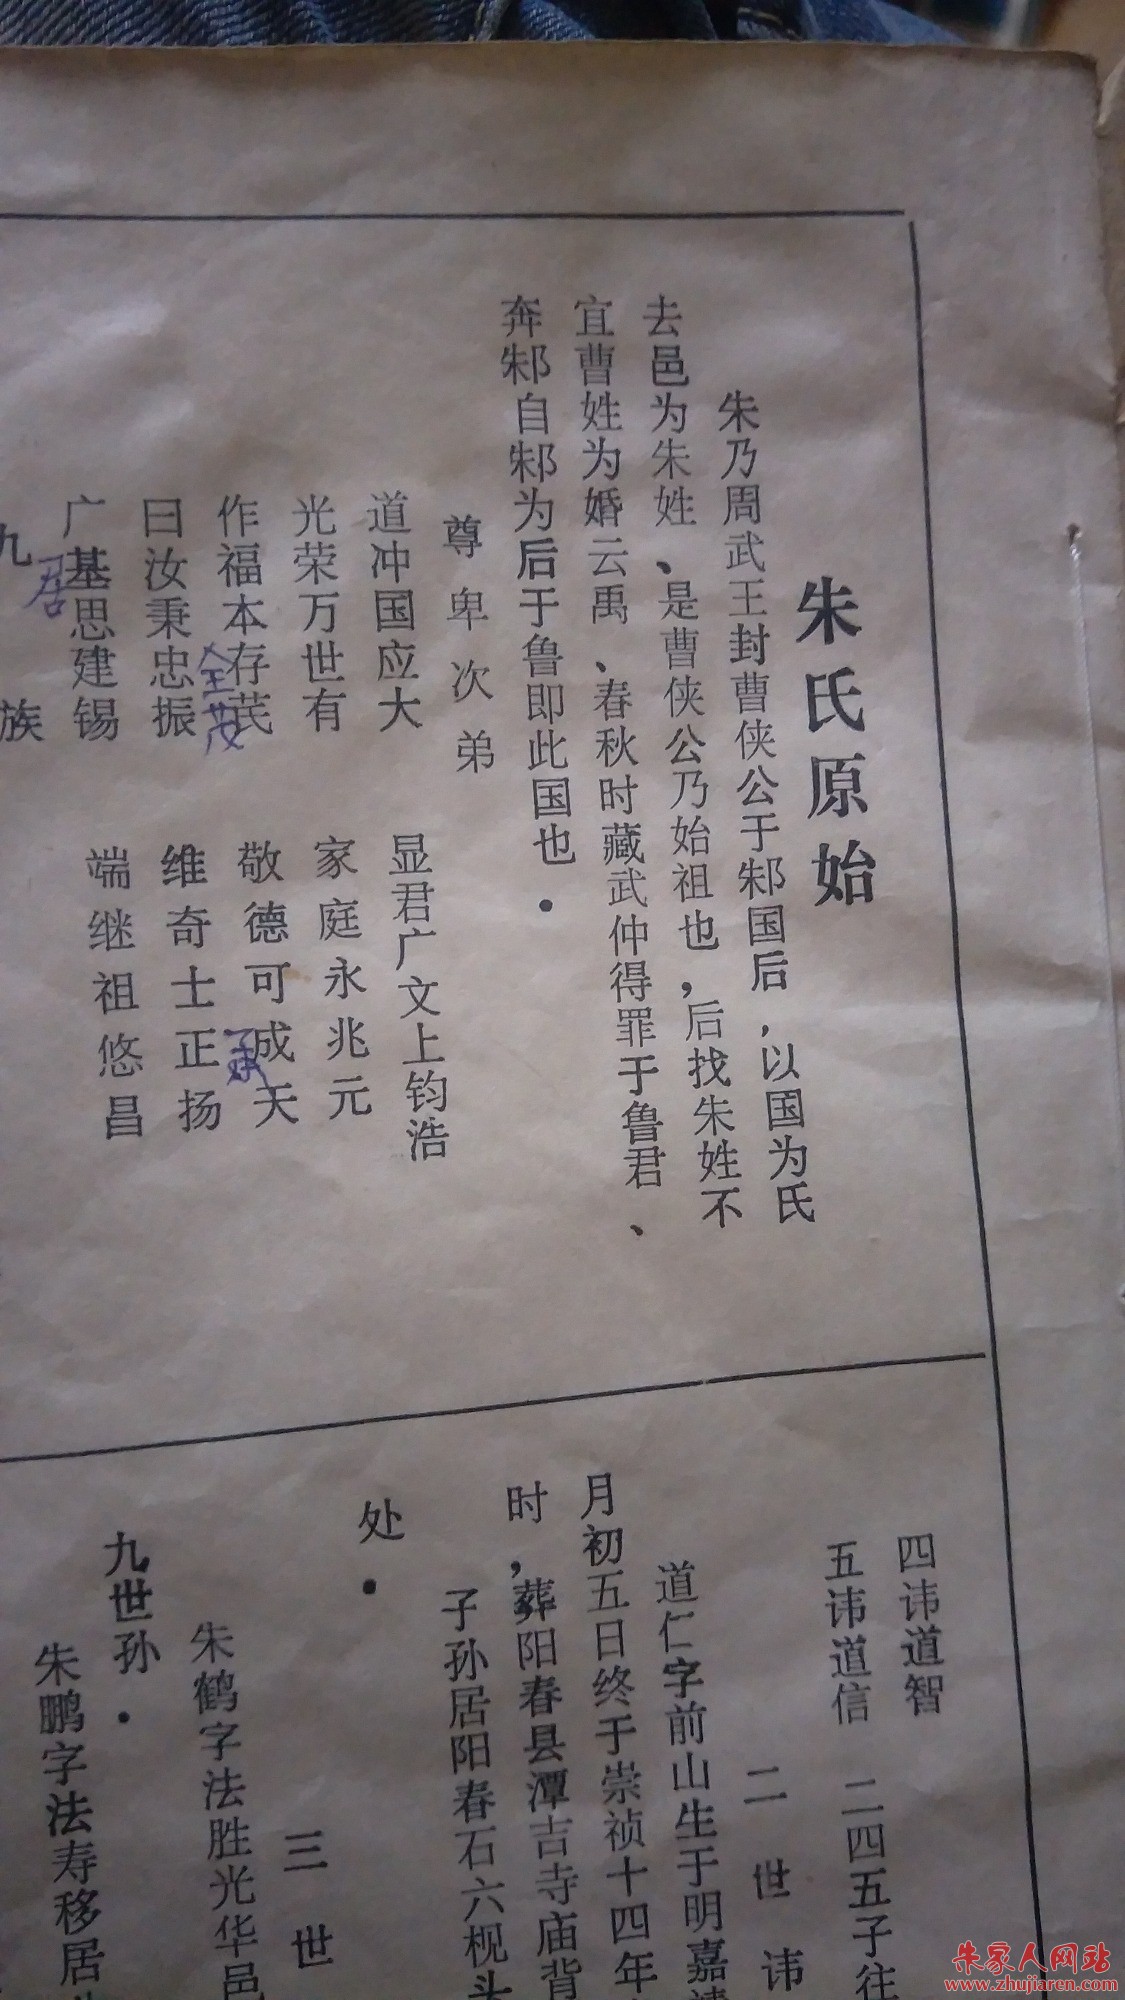 朱氏原始
朱乃周武王封曹侠公于邾国后，以国为氏
去邑为朱姓、是曹侠公乃始祖也，后找朱姓不
宜曹姓为婚云禹、春秋时藏武仲得罪于鲁君、
奔邾自邾为后于鲁即此国也．
尊卑次弟
道冲国应大 显君广文上钧浩
光荣万世有 家庭永兆元
作福本存芪 敬德可成天
全茂 承
曰汝秉忠振 维奇士正扬
广基思建锡 端继祖悠昌
君
九族
四讳道智
五讳道信 二四五子往
二世讳
道仁字前山生于明嘉靖
月初五日终于崇祯十四年
时，葬阳春县潭吉寺庙背
子孙居阳春石六枧头
处．
三世
朱鹤字法胜光华邑
九世孙．
朱鹏字法寿移居
朱家人网站
www.zhujiaren.com